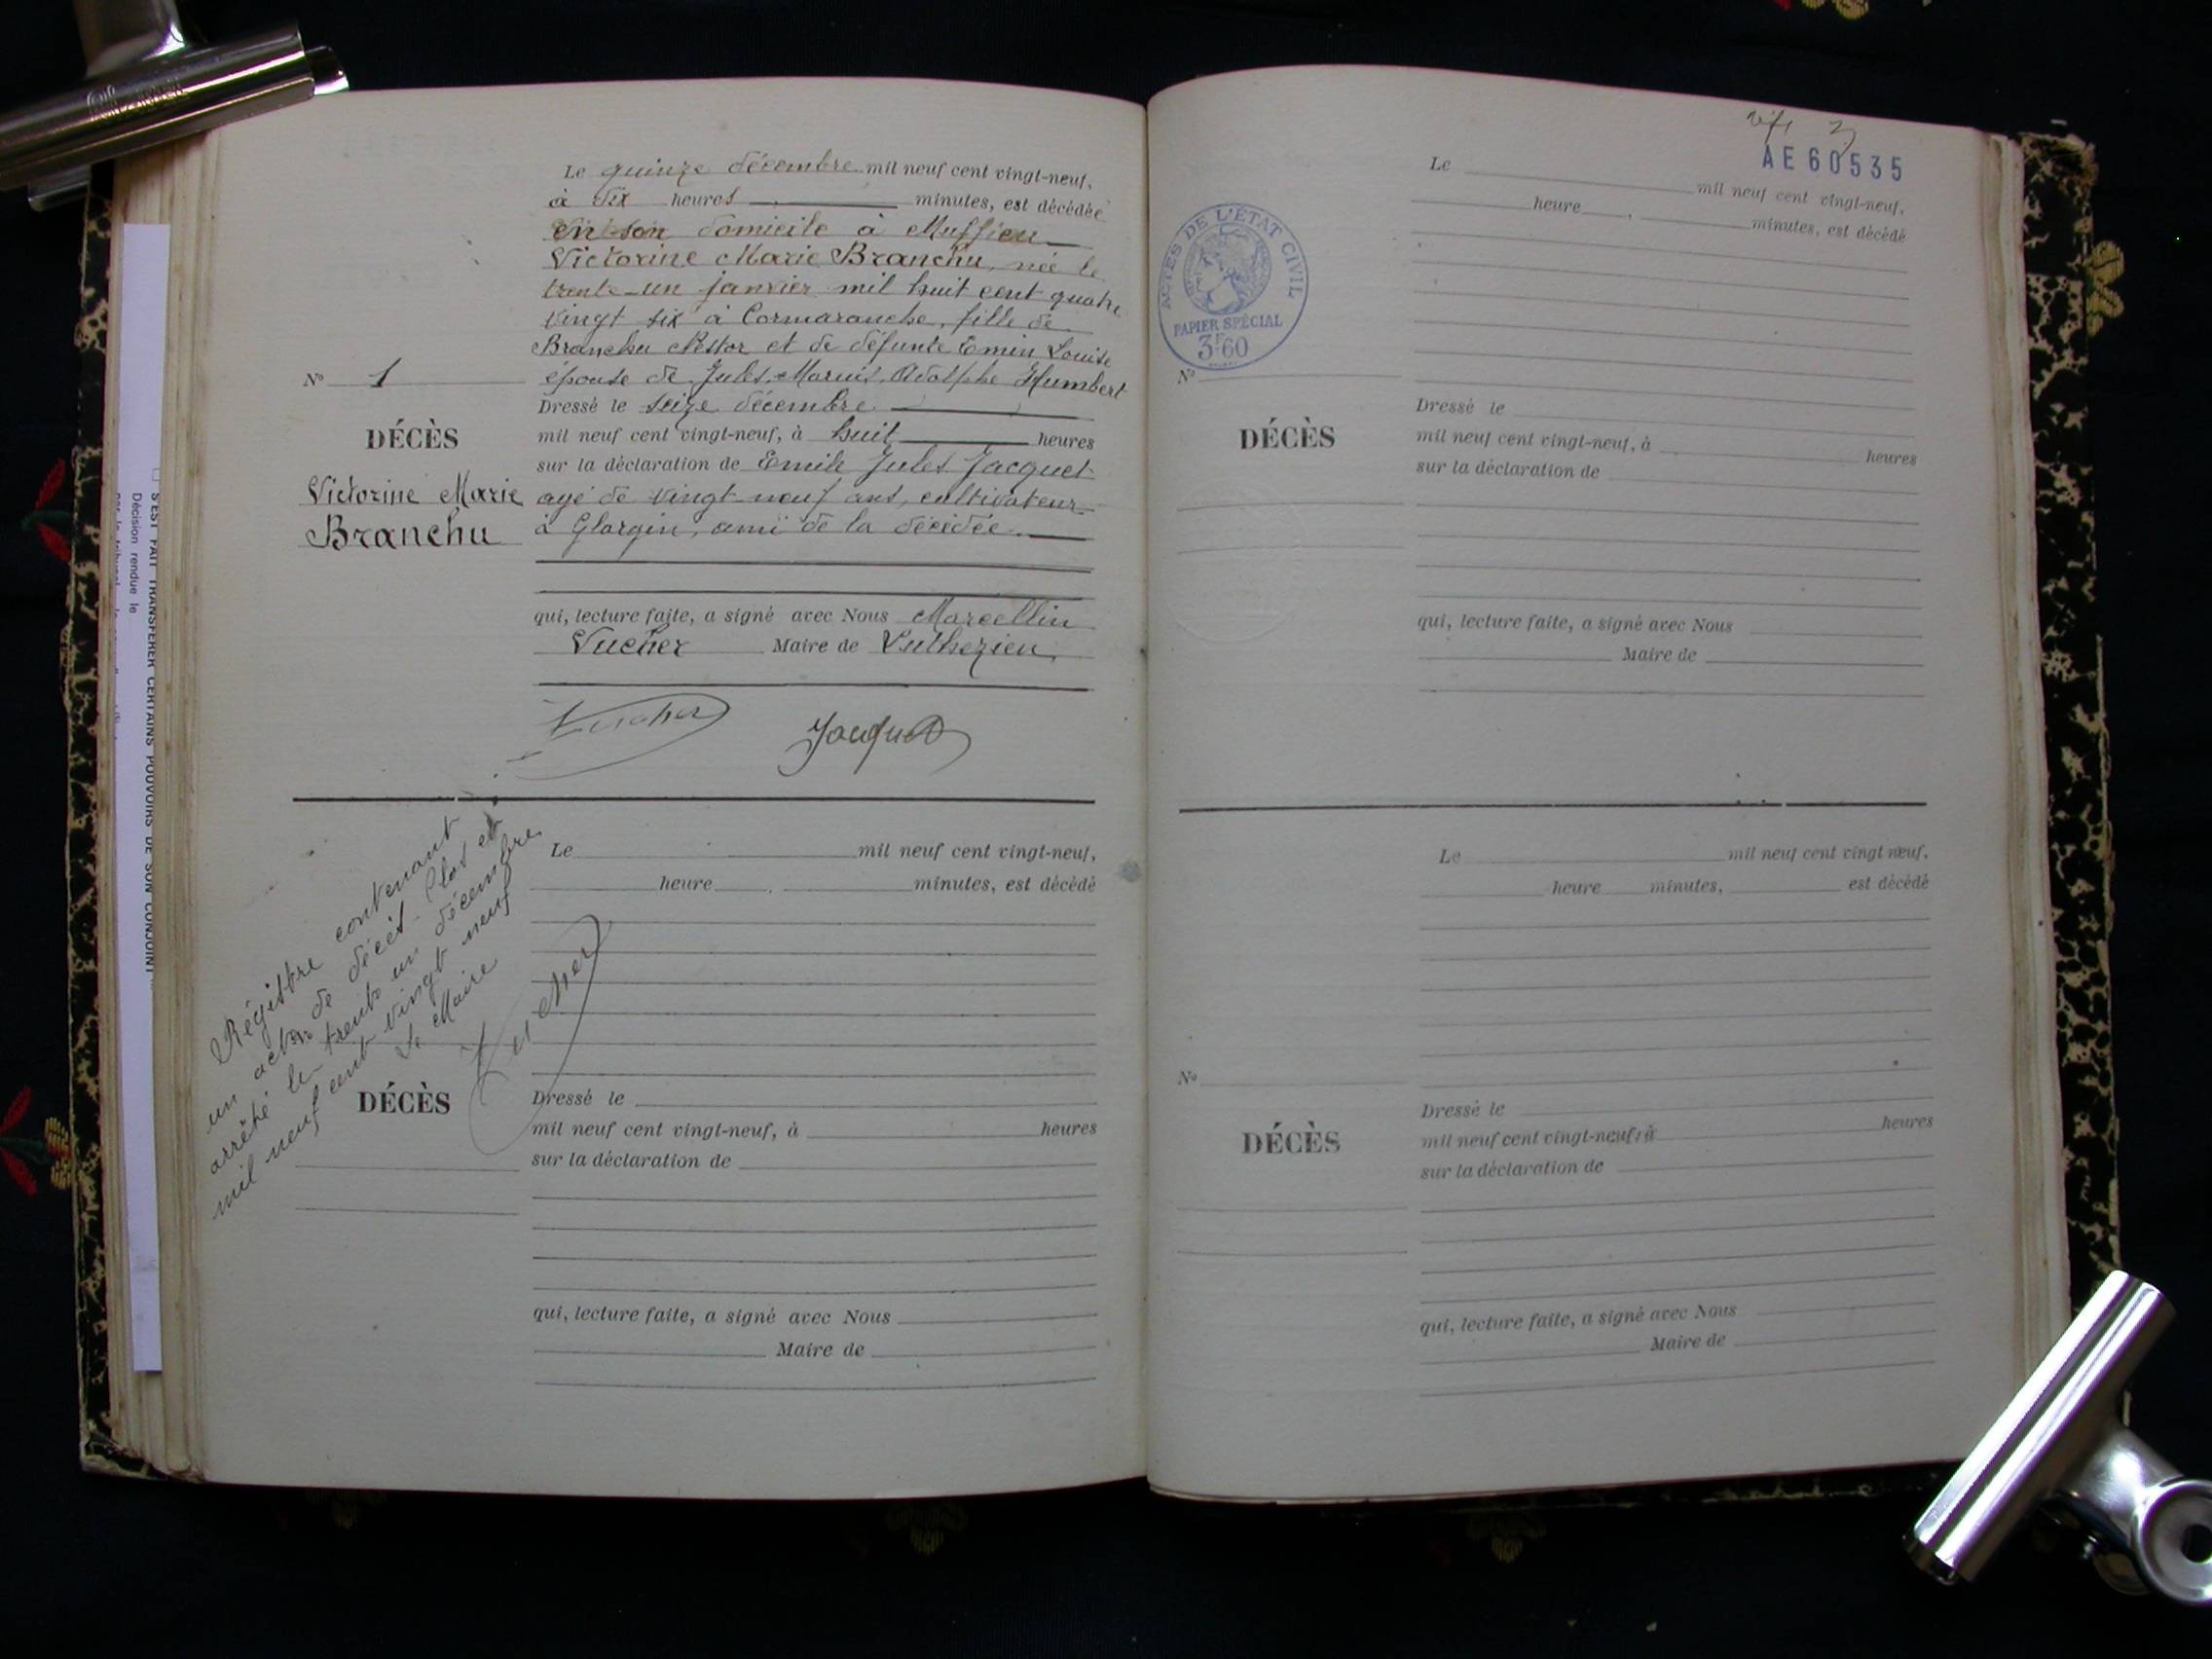 Le quinze décembre mil neuf cent vingt-neuf,
à six heures minutes, est décédée
en son domicile à Muffieu
Victorine Marie Branchu, née le
trente-un janvier mil huit cent quatre
vingt six à Cormaranche, fille de
Branchu Nestor et de défunte Emin Louise
épouse de Jules Marius Adolphe Humbert
Dressé le seize décembre
mil neuf cent vingt-neuf, à huit heures
sur la déclaration de Emile Jules Jacquet
agé de vingt-neuf ans, cultivateur
à Glargin, ami de la décédée.
qui, lecture faite, a signé avec Nous Marcellin
Vucher Maire de Sutherieu,
Vucher
Jacquet
N° 1
DÉCÈS
Victorine Marie
Branchu
Régistre contenant
un acte de décès. Clos et
arrêté le trente un décembre
mil neuf cent vingt neuf
Le Maire
Vucher
Le mil neuf cent vingt-neuf,
heure minutes, est décédé
DÉCÈS
Dressé le
mil neuf cent vingt-neuf, à heures
sur la déclaration de
qui, lecture faite, a signé avec Nous
Maire de
S'EST FAIT TRANSFÉRER CERTAINS POUVOIRS DE SON CONJOINT
Décision rendue le
AE 60535
ACTES DE L'ÉTAT CIVIL
PAPIER SPÉCIAL
3F60
Le mil neuf cent vingt-neuf,
heure minutes, est décédé
N°
DÉCÈS
Dressé le
mil neuf cent vingt-neuf, à heures
sur la déclaration de
qui, lecture faite, a signé avec Nous
Maire de
Le mil neuf cent vingt neuf,
heure minutes, est décédé
N°
DÉCÈS
Dressé le
mil neuf cent vingt-neuf, à heures
sur la déclaration de
qui, lecture faite, a signé avec Nous
Maire de